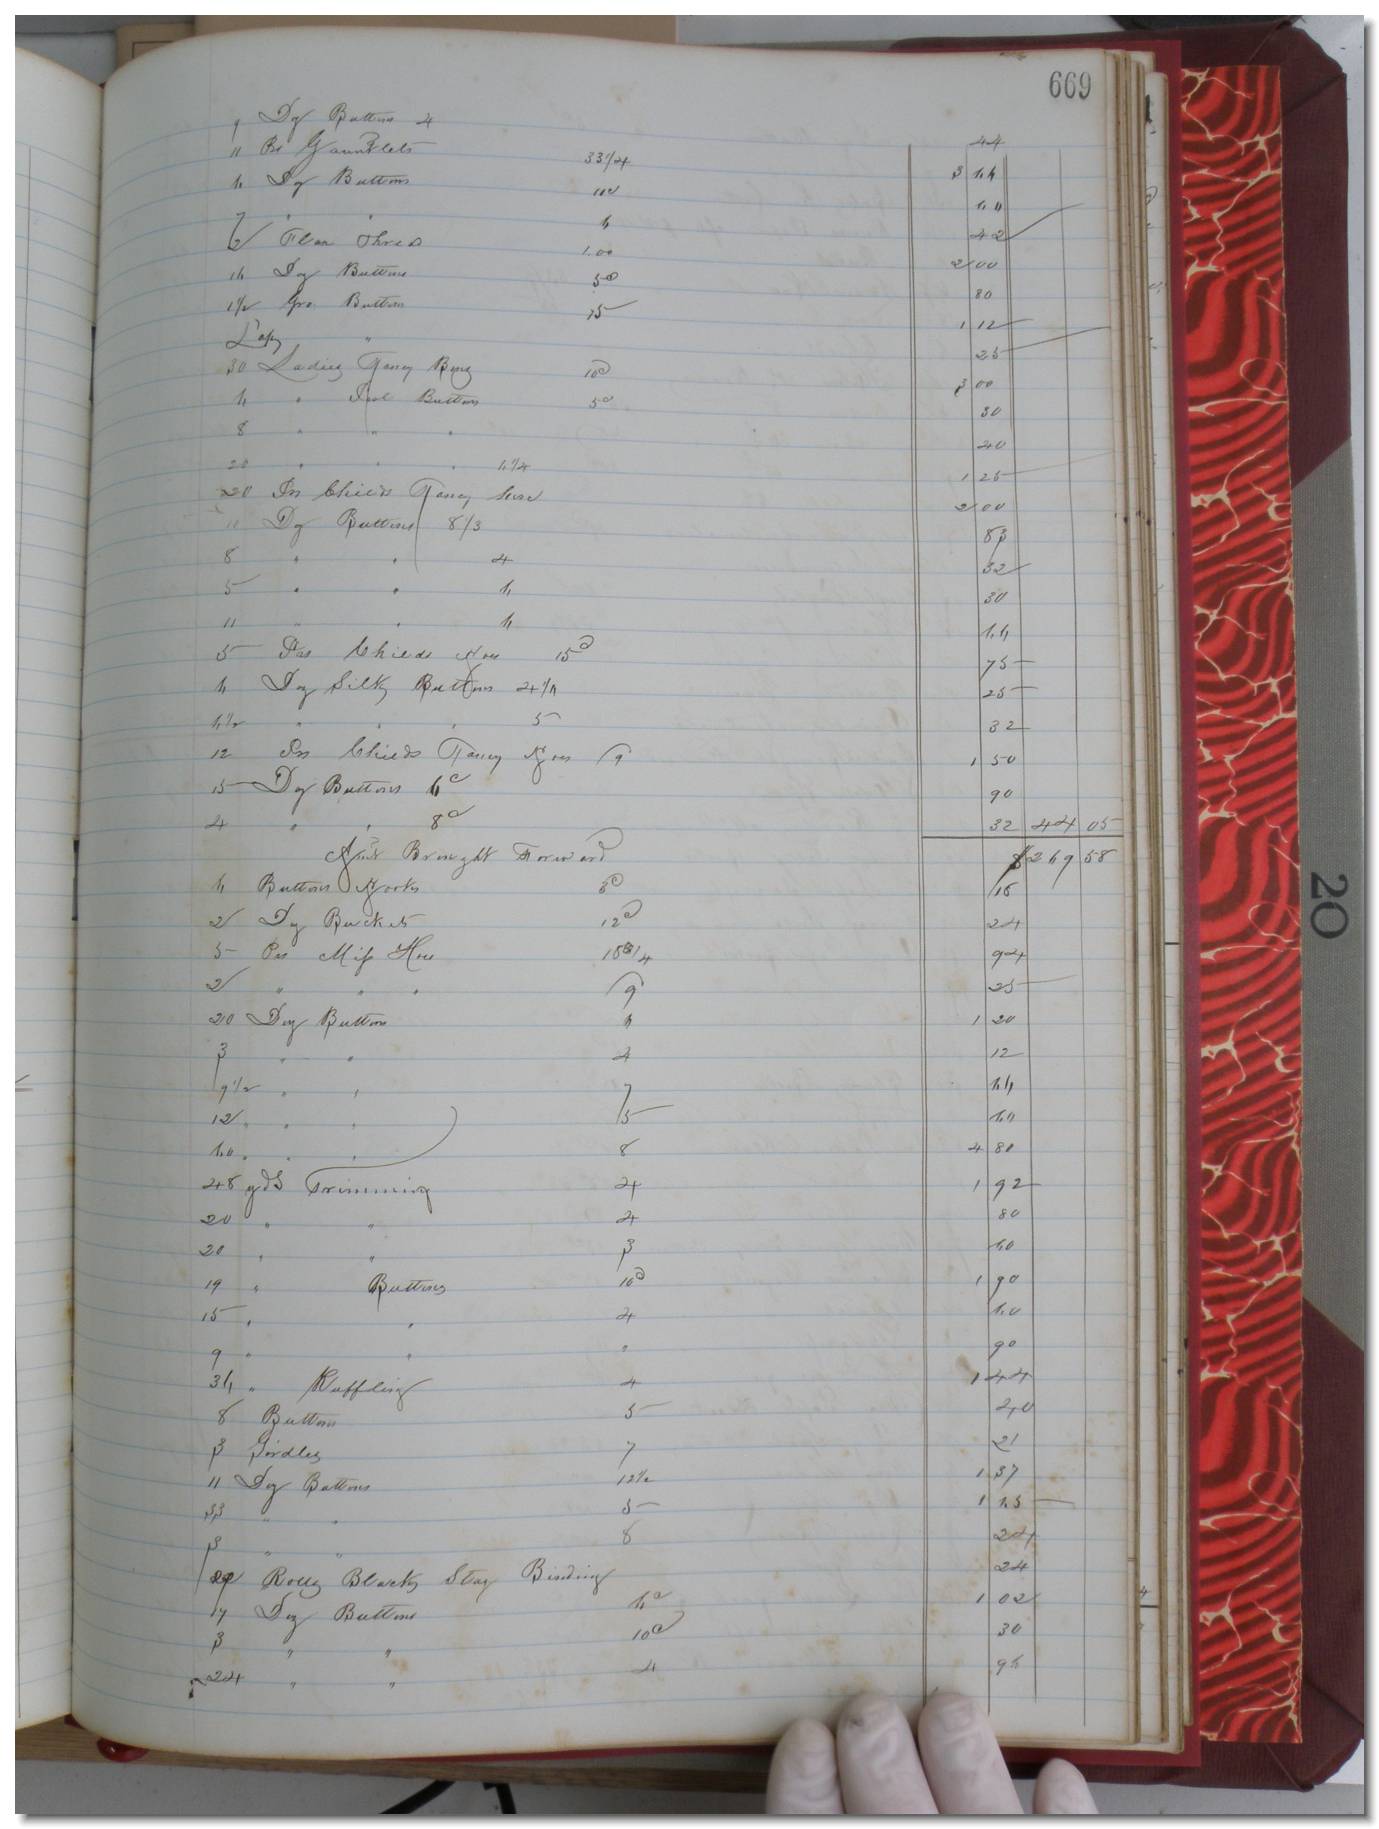 669
Dz Buttons 4 44
11 Prs Gauntlets 33 1/4 3 66
6 Dz Buttons 10c 60
7 " " 6 42
2 Flax Thred 1.00 2 00
16 Dz Buttons 5c 80
1 1/2 Gro Buttons 75 1 12
" 25
30 Ladies Fancy 10c 3 00
6 " Buttons 5c 30
8 " " " 40
20 " " " 6 1/4 1 25
20 Prs Childs Fancy hose 2 00
10 Dz Buttons 8/3 83
8 " " 4 32
5 " " 6 30
11 " " 6 66
5 Prs Childs Hose 15c 75
6 Dz Silk Buttons 4 1/6 25
6 1/2 " " " 5 32
12 Prs Childs Fancy Hose 1 50
15 Dz Buttons 6c 90
4 " " 8c 32 44 05
Amt Brought Forward $269 58
Button Hooks 16
2 Dz Buckets 12c 24
5 Prs Miss Hose 18 3/4 94
2 " " " 25
20 Dz Buttons 6 1 20
3 " " 4 12
9 1/2 " " 7 66
12 " " " 5 60
60 " " 8 4 80
48 yds Trimming 4 1 92
20 " " 4 80
20 " " 3 60
19 " Buttons 10c 1 90
15 " " 4 60
9 " " " 90
36 " Ruffling 4 1 44
8 Buttons 5 40
3 Girdles 7 21
11 Dz Buttons 12 1/2 1 37
33 " " 5 1 65
3 " " 8 24
Rolls Black Stay Binding 24
17 Dz Buttons 6c 1 02
3 " " 10c 30
24 " " 4 96
20